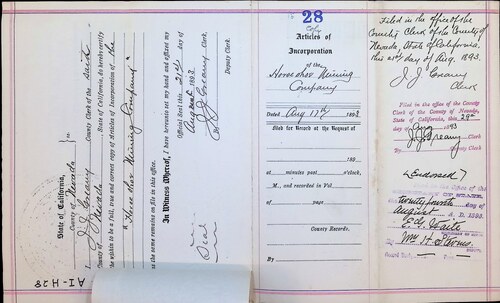 State of California,
County of Nevada } ss.
I, J. J. Greany County Clerk of the said
County of Nevada, State of California, do hereby certify
the within to be a full, true and correct copy of Articles of Incorporation of the
"Horse shoe Mining Company"
as the same remains on file in this office.
In Witness Whereof, I have hereunto set my hand and affixed my
Official Seal this 21st day of
August 1893
J. J. Greany
Deputy Clerk.
Seal
AI-H28
28
Copy
Articles of
Incorporation
of the
Horse shoe Mining
Company
Dated Aug 17th 1893
Filed for Record at the Request of
189
at minutes past o'clock,
M., and recorded in Vol.
of
page
County Records.
By
Filed in the office of the
County Clerk of the County of
Nevada, State of California,
this 21st day of Aug. 1893.
J. J. Greany
Clerk
Filed in the office of the County
Clerk of the County of Nevada,
State of California, this
day of Aug 1893
J. J. Greany
County Clerk
By Clerk
Endorsed
office of the
twenty fourth day of
August A.D. 1893
E. G. Waite
By Wm H.